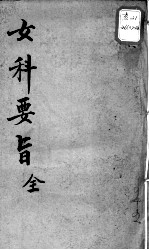 女科要旨 全